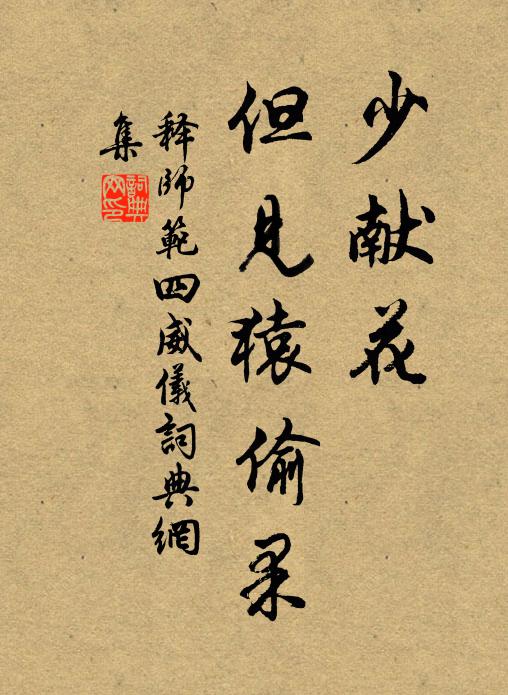 少献花
但見猿偷果
释師範四威儀詞典網
集
詞典網印